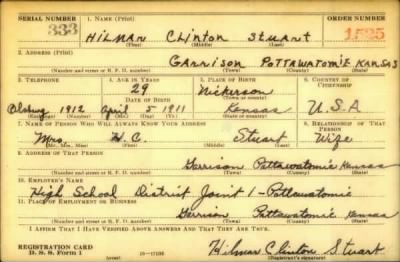 SERIAL NUMBER 1. NAME (Print) ORDER NUMBER
333 HILMAR CLINTON STUART 1525
(First) (Middle) (Last)
2. ADDRESS (Print)
GARRISON POTTAWATOMIE KANSAS
(Number and street or R. F. D. number) (Town) (County) (State)
3. TELEPHONE 4. AGE IN YEARS 5. PLACE OF BIRTH 6. COUNTRY OF CITIZENSHIP
29 Nickerson
DATE OF BIRTH (Town or county)
Olsburg 1912 April 5 1911 Kansas U.S.A
(Exchange) (Number) (Mo.) (Day) (Yr.) (State or country)
7. NAME OF PERSON WHO WILL ALWAYS KNOW YOUR ADDRESS 8. RELATIONSHIP OF THAT PERSON
Mrs H. C. Stuart Wife
(Mr., Mrs., Miss) (First) (Middle) (Last)
9. ADDRESS OF THAT PERSON
Garrison Pottawatomie Kansas
(Number and street or R. F. D. number) (Town) (County) (State)
10. EMPLOYER'S NAME
High School District Joint 1 - Pottawatomie
11. PLACE OF EMPLOYMENT OR BUSINESS
Garrison Pottawatomie Kansas
(Number and street or R. F. D. number) (Town) (County) (State)
I AFFIRM THAT I HAVE VERIFIED ABOVE ANSWERS AND THAT THEY ARE TRUE.
REGISTRATION CARD
D. S. S. Form 1 Hilmar Clinton Stuart
(Registrant's signature)